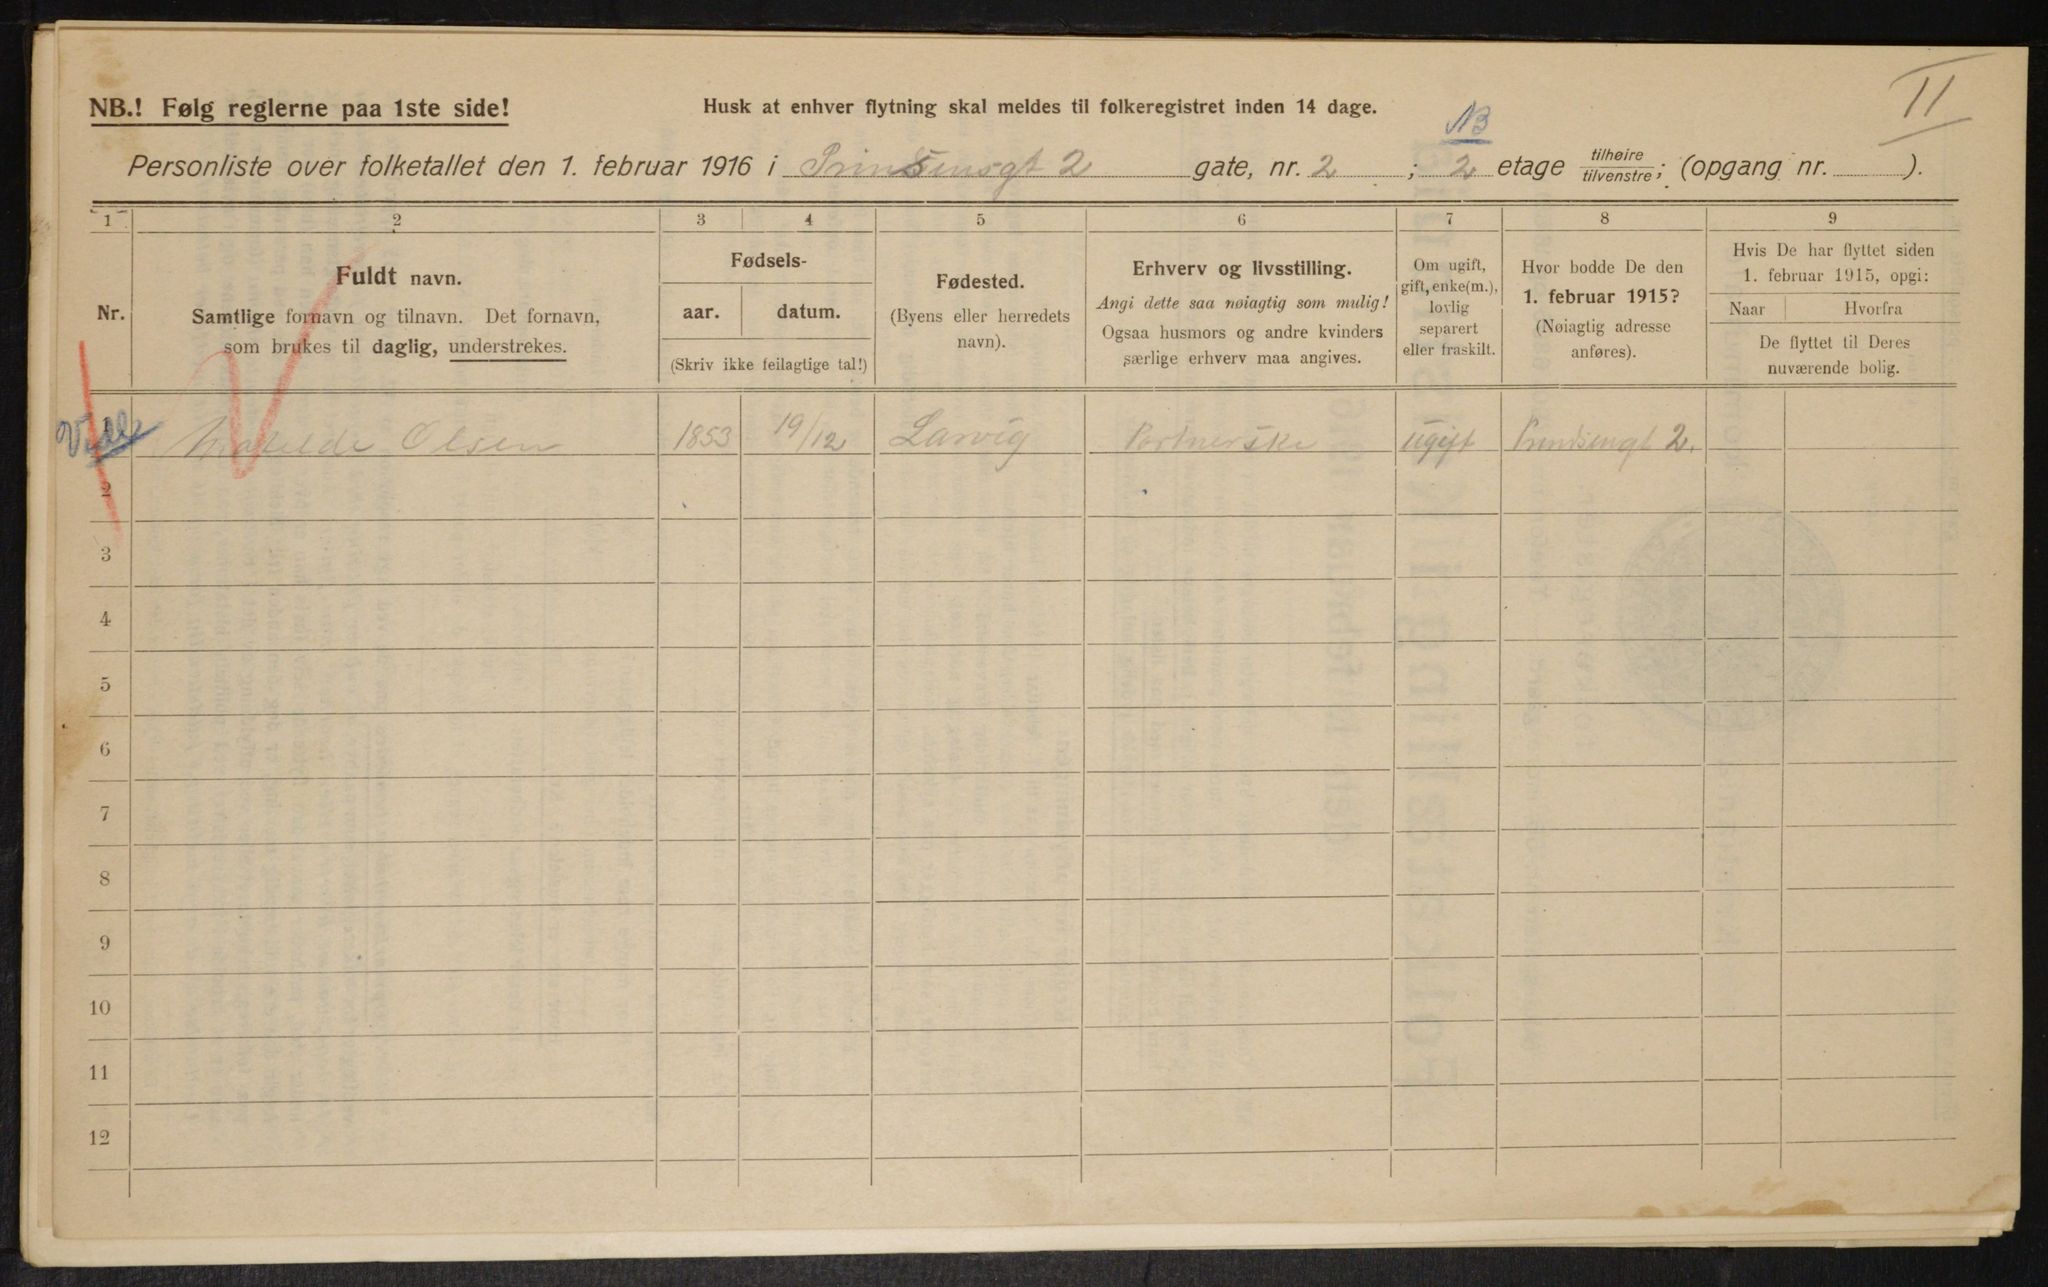 II
NB.! Følg reglerne paa 1ste side!
Husk at enhver flytning skal meldes til folkeregistret inden 14 dage.
NB
Personliste over folketallet den 1. februar 1916 i Prinsensgt 2 gate, nr. 2 ; 2 etage tilhøire tilvenstre; (opgang nr. ).
1 2 3 4 5 6 7 8 9
Nr.
Fuldt navn.
Samtlige fornavn og tilnavn. Det fornavn,
som brukes til daglig, understrekes.
Fødsels-
aar. datum.
(Skriv ikke feilagtige tal!)
Fødested.
(Byens eller herredets
navn).
Erhverv og livsstilling.
Angi dette saa nøiagtig som mulig!
Ogsaa husmors og andre kvinders
særlige erhverv maa angives.
Om ugift,
gift, enke(m.),
lovlig
separert
eller fraskilt.
Hvor bodde De den
1. februar 1915?
(Nøiagtig adresse
anføres).
Hvis De har flyttet siden
1. februar 1915, opgi:
Naar Hvorfra
De flyttet til Deres
nuværende bolig.
1 Matelde Olsen 1853 19/12 Larvig Portnerske ugift Prindsensgt 2.
2
3
4
5
6
7
8
9
10
11
12